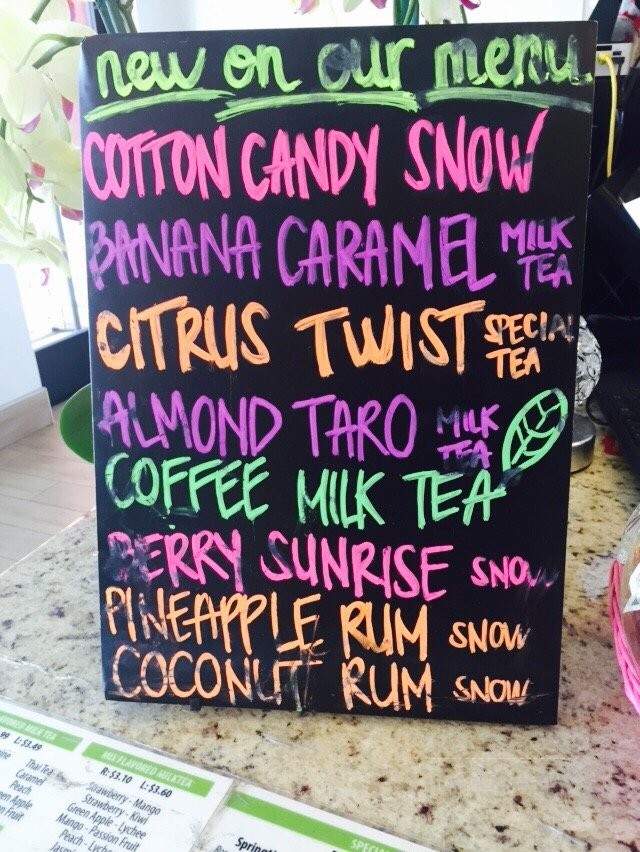 new on our menu
COTTON CANDY SNOW
BANANA CARAMEL MILK TEA
CITRUS TWIST SPECIAL TEA
ALMOND TARO MILK TEA
COFFEE MILK TEA
BERRY SUNRISE SNOW
PINEAPPLE RUM SNOW
COCONUT RUM SNOW
99 L:$3.49
Thai Tea
Caramel
Peach
Green Apple
MIX FLAVORED MILK TEA
R:$3.10 L:$3.60
Strawberry - Mango
Strawberry - Kiwi
Green Apple - Lychee
Mango - Passion Fruit
Peach - Lychee
SPECIAL